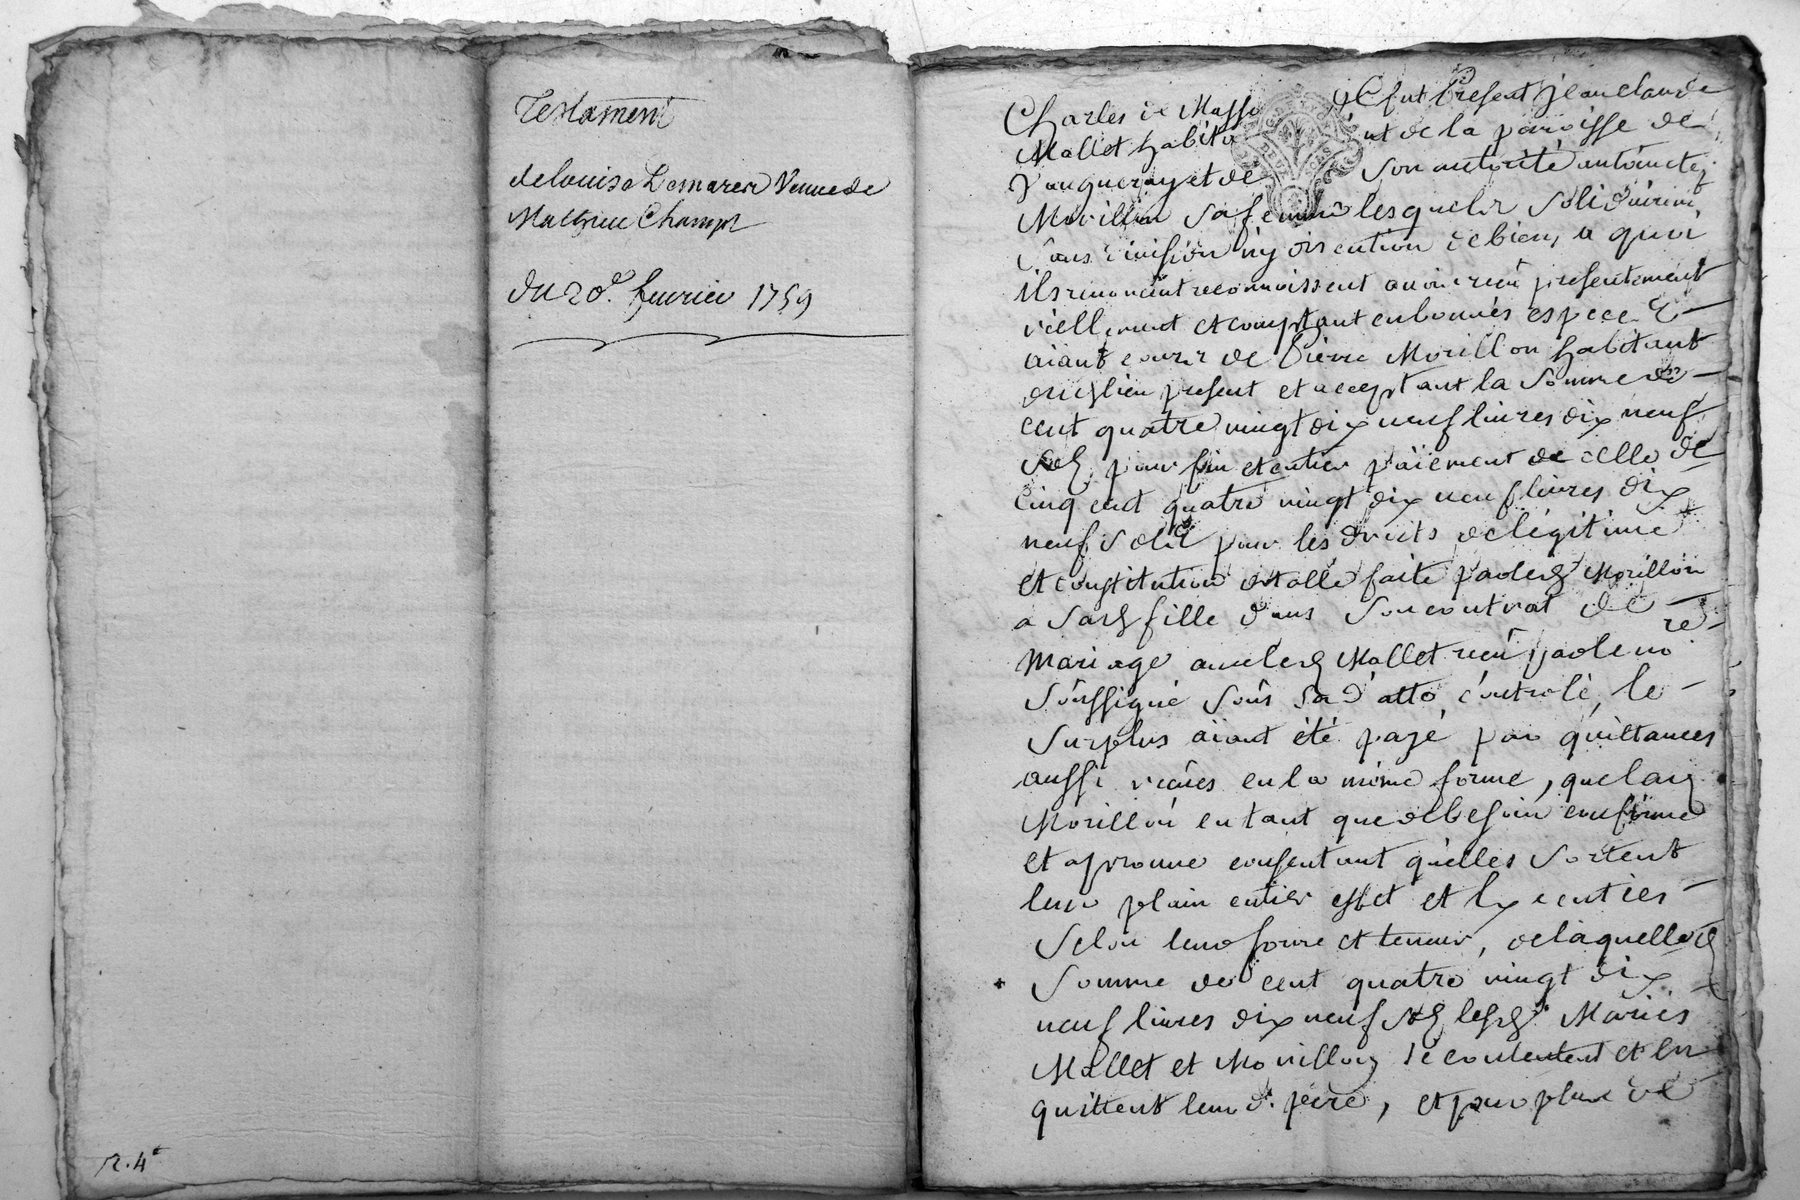 Testament
de louise Lemarera Veuve de
Mathieu Champt
du 20e. fevrier 1759
R. 4e
fut Present Jean claude
Charles de Masso
Mallet habita nt de la paroisse de
Vaugneray et de Son autorité antoinette
Morillon Sa femme lesquels Solidairemt
Sans division ny discution de biens a quoi
ils renoncent reconnoissent avoir reçu presentement
réellement et comptant en bonnes especes
aiant cours de Pierre Morillon habitant
dud lieu present et acceptant la Somme de
cent quatre vingt dix neuf livres dix neuf
sols pour fin et entier païement de celle de
Cinq cent quatre vingt dix neuf livres dix
neuf sols pour les droits de légitime
et constitution dotalle faite par led Morillon
a Sad fille dans Son contrat de
mariage avec led Mallet reçu par le no re
Soussigné Sous Sa d'atte controlé, le
Surplus aiant été payé par quittances
aussi reçues en la même forme, que lad
Morillon en tant que de besoin confirme
et aprouve consentant qu'elles Sortent
leur plain entier effet et Exécutées
Selon leur forme et teneur, de laquelle d
Somme de cent quatre vingt dix
neuf livres dix neuf sols lesd Mariés
Mallet et Morillon se contentent et En
quittent leur d. pere, et pour plus de